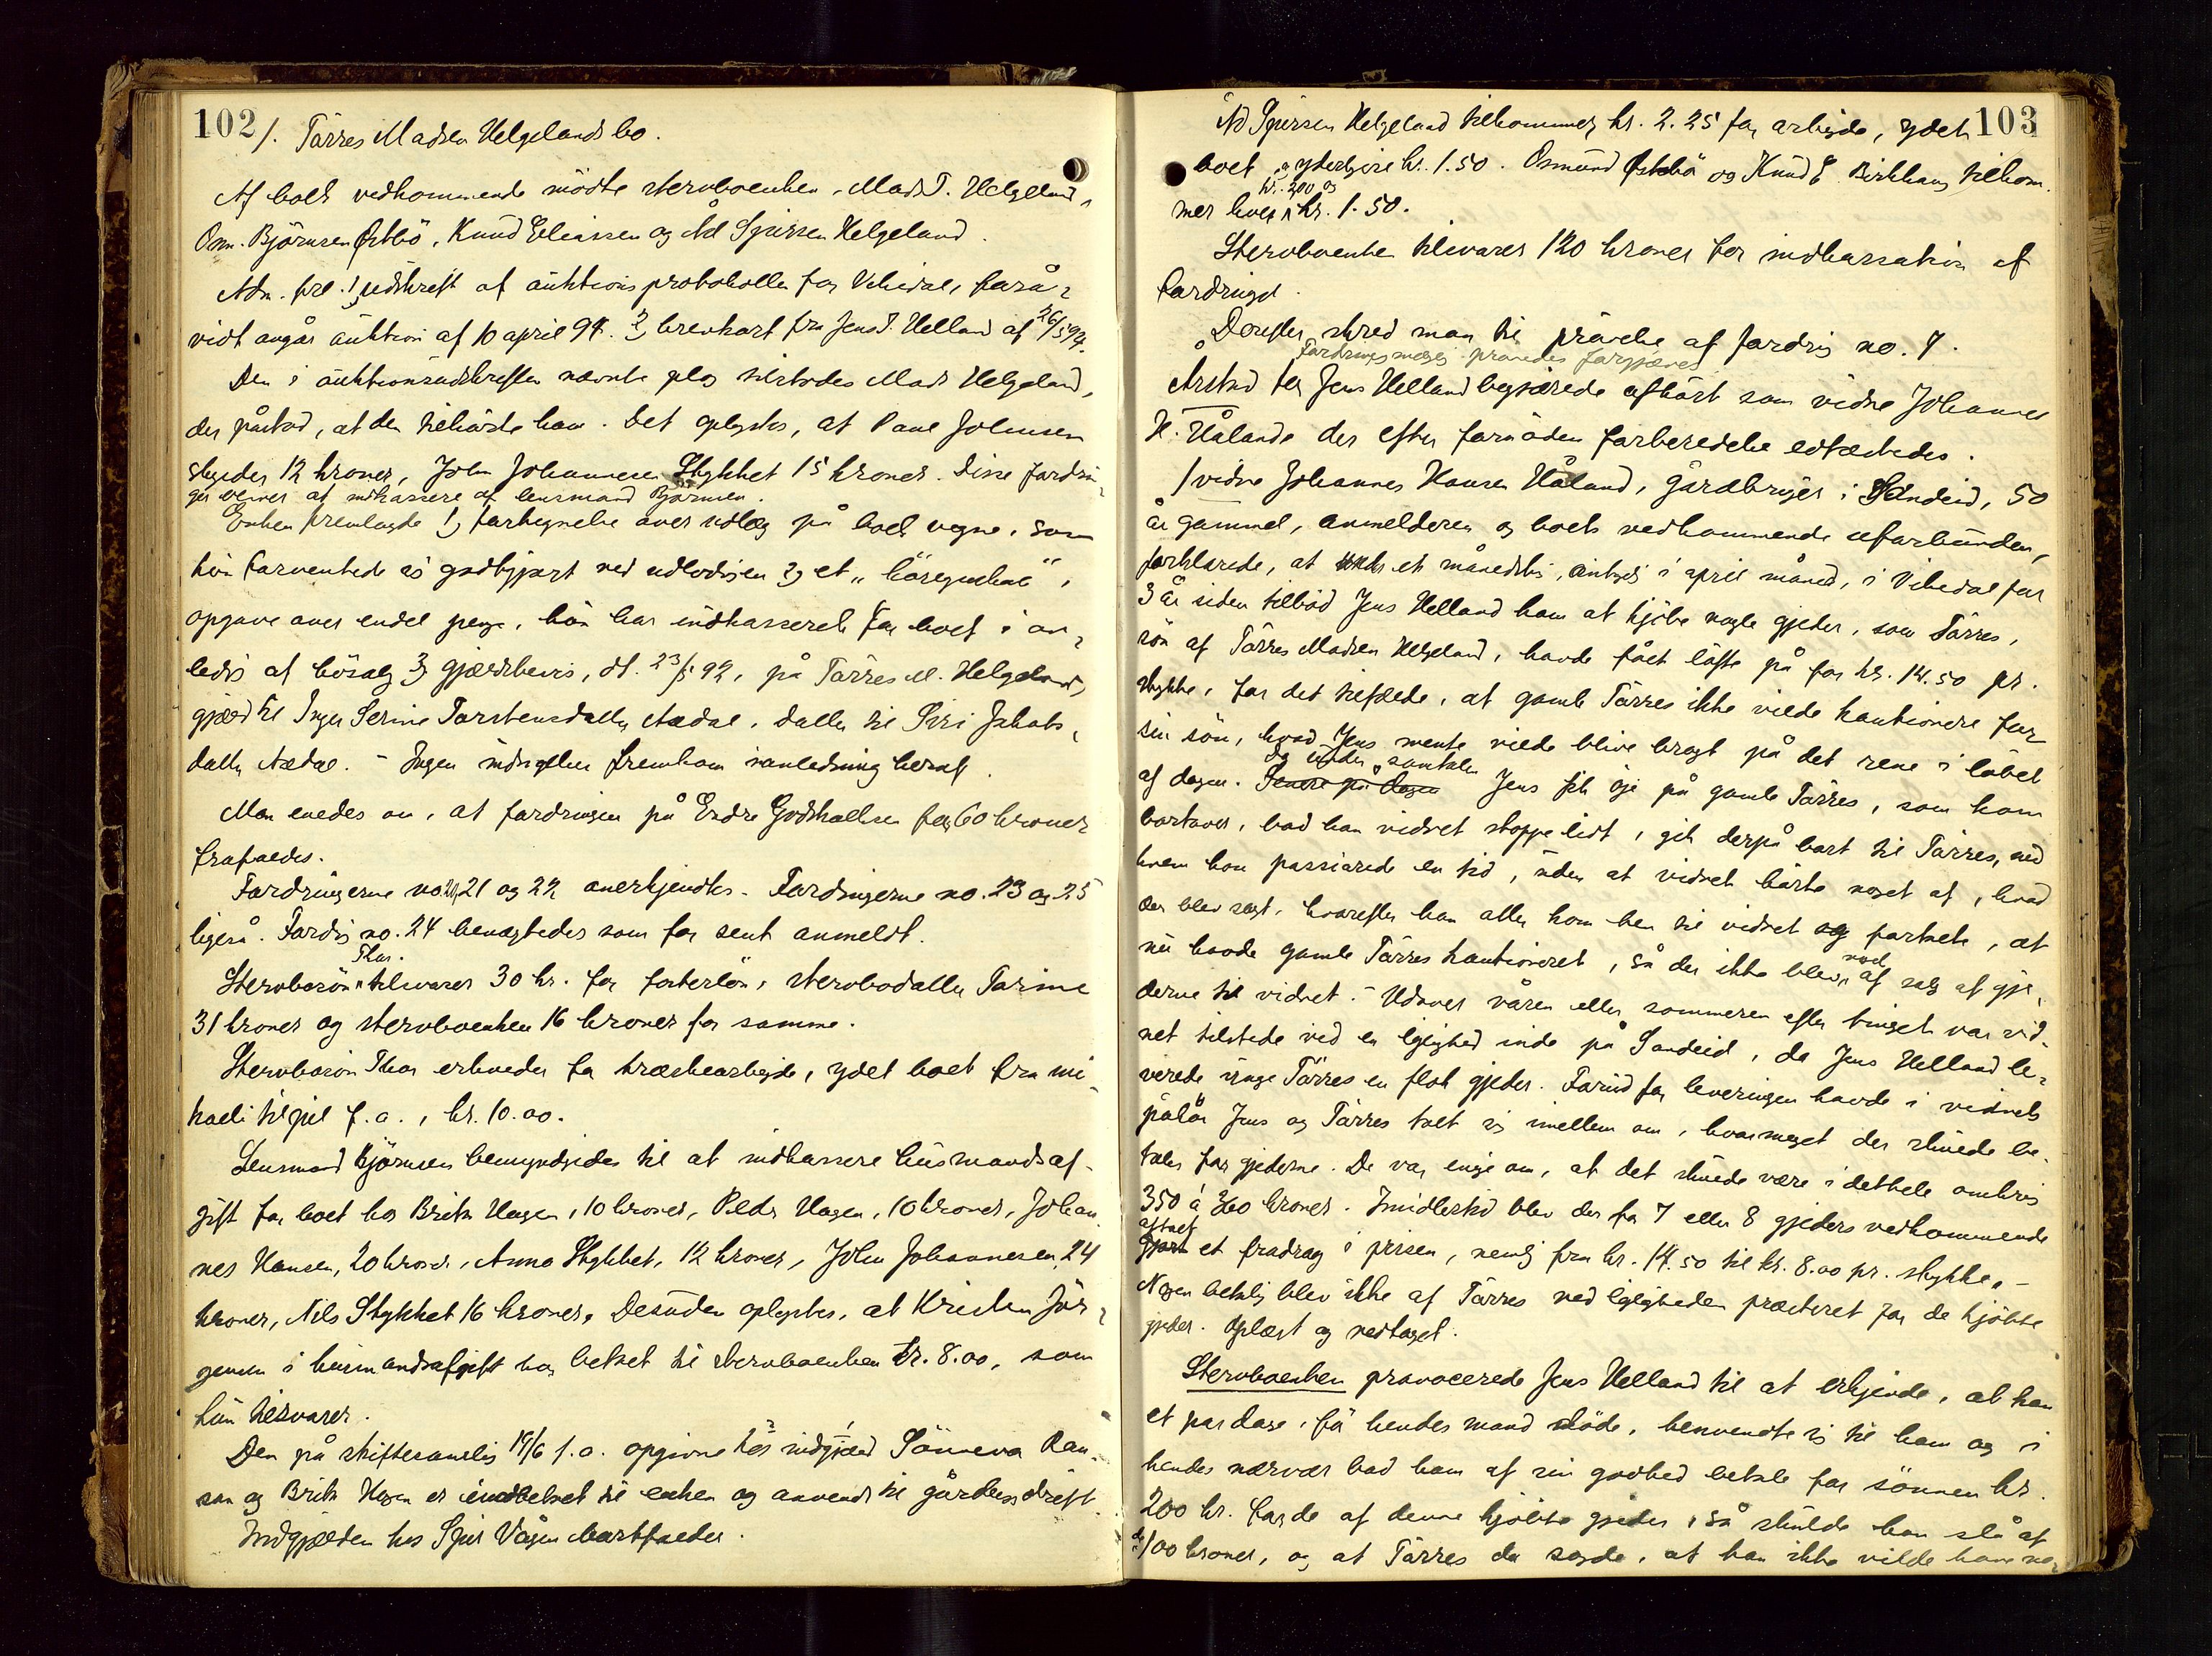 102
1. Tårres Madsen Helgelands bo.
Af boets vedkommende mödte stervboenken, Mads T. Helgeland,
Osm. Björnsen Østbö, Knud Eliassen og Ad Sjursen Helgeland.
Adm. frl. 1) udskrift af auktionsprotokollen for Vikedal, forså-
vidt angår auktion af 10 april 94. 2) brevkort fra Jens T. Helland af 26/5 94.
Den i auktionsudskriften nævnte plog tilstodes Mads Helgeland,
der påstod, at den tilhörte ham. Det oplystes, at Paul Johnsen
skylder 12 kroner, John Johannesen Stykket 15 kroner. Disse fordrin-
ger vil at indkassere af lensmand Björnsen.
Enken fremlagde 1) fortegnelse over udlæg på boets vegne, som
hun forventede sig godtgjort ved udlodningen 2) et "
opgave over endel penge, hun har indkasseret for boet i an-
ledn. af lösalg 3) gjældsbevis, dt. 23/5 92, på Tårres M. Helgelands
gjæld til Inger Serine Torstensdatter Aadal, datter til Siri Jakobs-
datter Aadal. - Ingen indsigelser fremkom i anledning heraf.
Man enedes om, at fordringen på Endre Godskalksen for 60 kroner
frafaldes.
Fordringerne no. 20, 21 og 22 anerkjendtes. Fordringerne no. 23 og 25
ligeså. Fordrg no. 24 benægtedes som for sent anmeldt.
Thor.
Stervbosön tilsvarer 30 kr. for fosterlön, stervbodatter Torine
31 kroner og stervboenken 16 kroner for samme.
Stervbosön Thor erholder for træskearbejde, ydet boet fra mi-
kaeli til jul f.a., kr. 10.00.
Lensmand Björnsen bemyndigedes til at indkassere husmandsaf-
gift for boet hos Brita Hagen, 10 kroner, Peder Hagen, 10 kroner, Johan-
nes Hansen, 20 kroner, Anna Stykket, 12 kroner, John Johannesen, 24
kroner, Nils Stykket 16 kroner. Desuden oplystes, at Kristen Jör-
gensen i husmandsafgift har betalt til stervboenken kr. 8.00, som
hun tilsvarer.
Den på skiftesamling 19/6 f.a. opgivne hos indgjæld Sönneva Ran-
san og Brita Hagen er indbetalt til enken og anvendt til gårdens drift.
Indgjælden hos Sjur Vågen bortfalder.
103
Ad Sjursen Helgeland tilkommer kr. 2.25 for arbejde, ydet
boet, yderligere kr. 1.50. Osmund Østebö og Knud E. Birkhaug tilkom-
kr. 2.00 og
mer hver kr. 1.50.
Stervboenken tilsvarer 120 kroner for indkassation af
fordringer.
Derefter skred man til prövelse af fordrg no. 7.
Fordringsmægl. prövedes forgjæves.
Årstad for Jens Helland begjærede afhört som vidne Johannes
H. Håland der efter fornöden forberedelse edfæstedes.
1 vidne Johannes Hansen Håland, gårdbruger i Sandeid, 50
år gammel, anmelderen og boets vedkommende uforbunden,
forklarede, at under et månedsting, antagelig i april måned, i Vikedal for
3 år siden tilböd Jens Helland ham at kjöbe nogle gjeder, som Tårres,
sön af Tårres Madsen Helgeland, havde fået löfte på for kr. 14.50 pr.
stykke, for det tilfælde, at gamle Tårres ikke vilde kautionere for
sin sön, hvad Jens mente vilde blive bragt på det rene i löbet
Da under samtalen
af dagen. Senere på dagen Jens fik öje på gamle Tårres, som kom
bortover, bad han vidnet stoppe lidt, gik derpå bort til Tårres, med
hvem han passiarede en tid, uden at vidnet hörte noget af, hvad
der blev sagt, hvorefter han atter kom hen til vidnet og fortalte, at
nu havde gamle Tårres kautioneret, så der ikke blev noget af salg af gje-
derne til vidnet. - Udover våren eller sommeren efter tinget var vid-
net tilstede ved en leilighed inde på Sandeid, da Jens Helland le-
verede unge Tårres en flok gjeder. Forud for leveringen havde i vidnets
påhör Jens og Tårres talt sig imellem om, hvormeget der skulde be-
tales for gjederne. De var enige om, at det skulde være i dethele omkring
350 à 360 kroner. Imidlertid blev der for 7 eller 8 gjeders vedkommende
aftalt
gjort et fradrag i prisen, nemlig fra kr. 14.50 til kr. 8.00 pr. stykke. -
Nogen betaling blev ikke af Tårres ved leiligheden præsteret for de kjöbte
gjeder. Oplæst og vedtaget.
Stervboenken provocerede Jens Helland til at erkjende, at han
et par dage, fö hendes mand döde, henvendte sig til ham og i
hendes nærvær bad ham af sin godhed betale for sönnen kr.
200 kr. for de af denne kjöbte gjeder, så skulde han slå af
de 100 kroner, og at Tårres da sagde, at han ikke vilde have no-